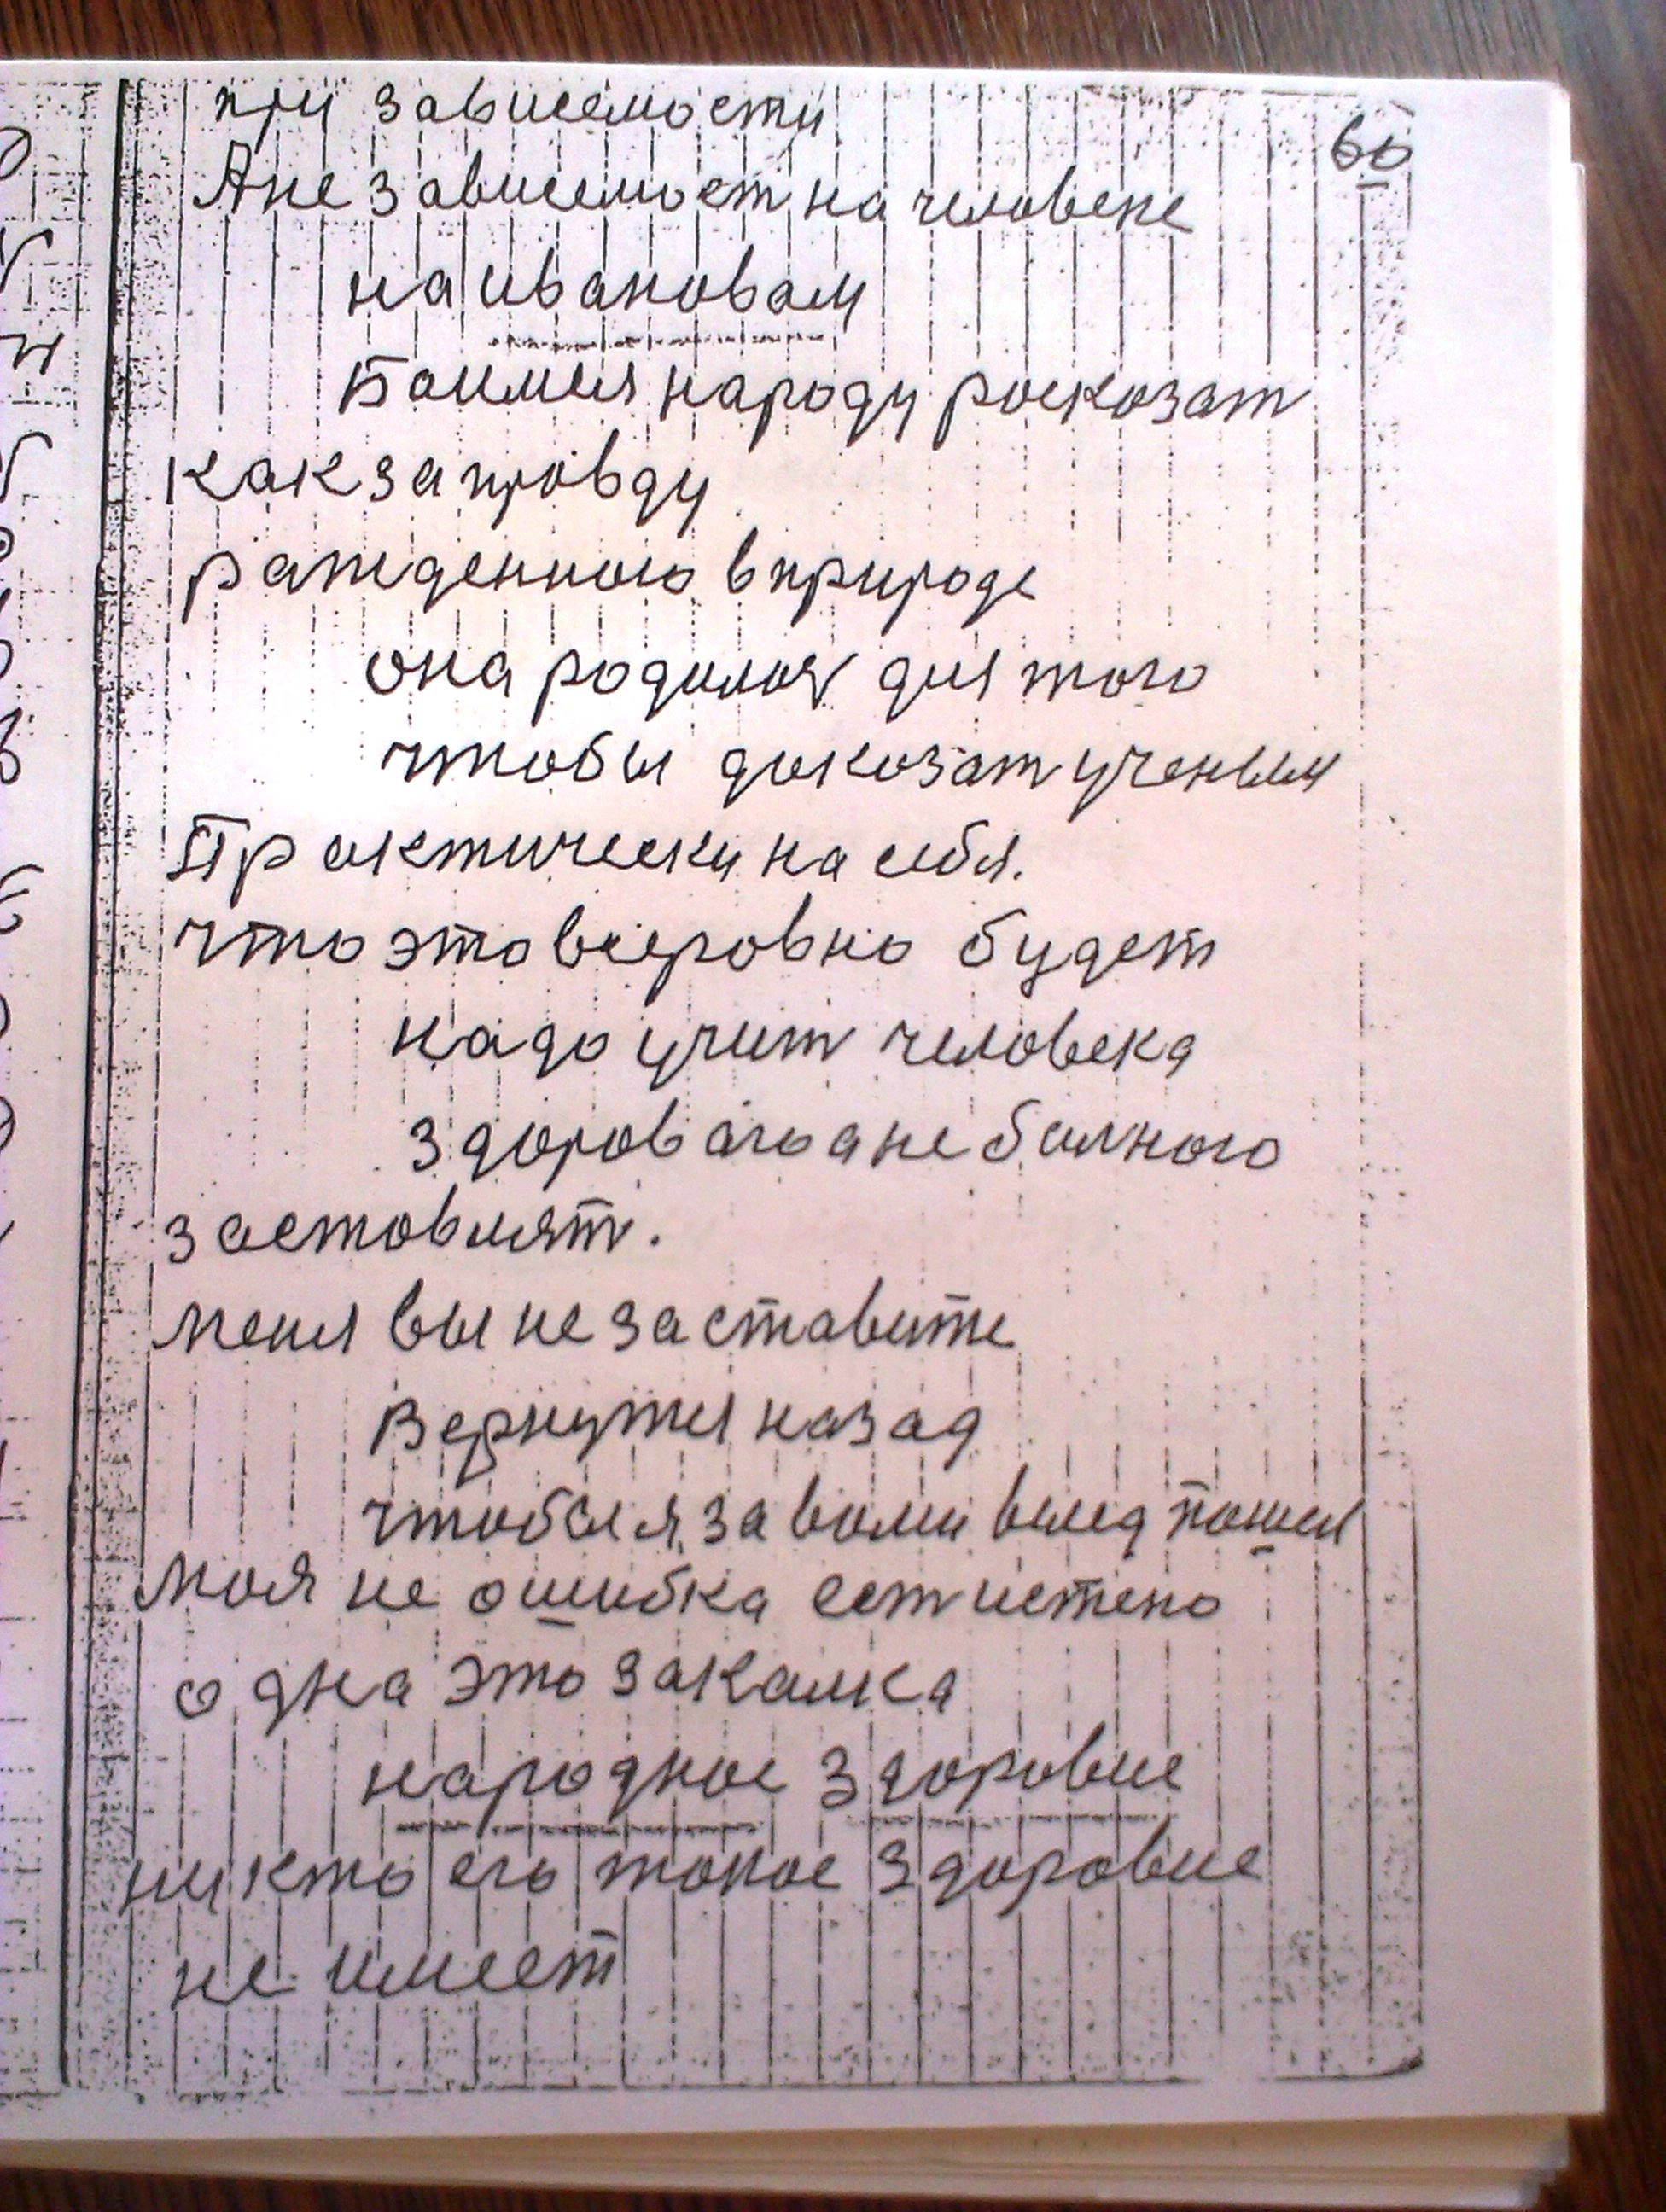 при зависемости
60
Ане зависемост на человеке
на ивановам
Боимся народу росказат
как за провду
ражденного в природе
она родилоя для того
чтобы докозат ученым
Практически на себя.
что это всеровно будет
надо учит человека
здороваго а не болного
застовлят.
меня вы не заставите
Вернутся назад
чтобы я за вами вслед пошел
Моя не ошибка ест истено
одна это закалка
народное здоровие
ни кто его токое здоровие
не имеет